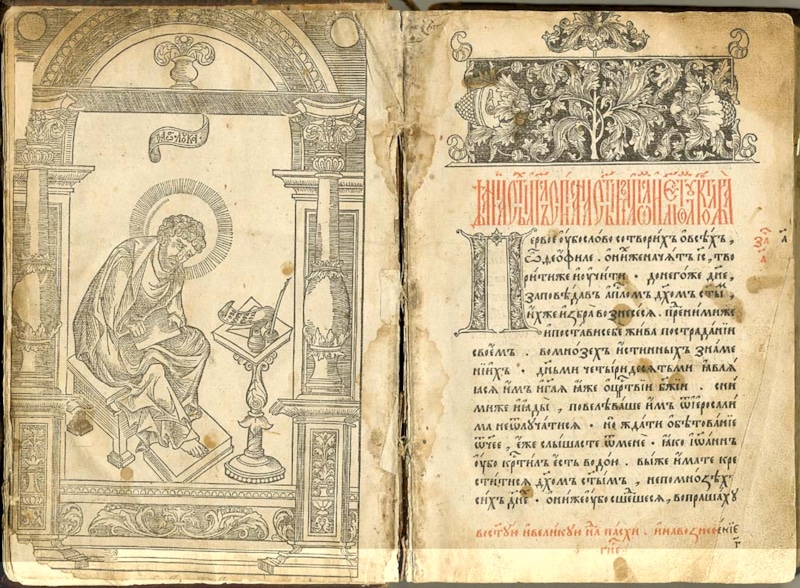 АГІ ЛꙊКА
Первое ѹбо слово сотворихъ ѡ всѣхъ,
ѽ ѳеофиле . ѡ нихже начѧтъ і҃с, тво
рити же и ꙋчити · до негоже дн҃е,
заповѣдавъ ап҃лѡмъ дх҃омъ ст҃ы,
ихже избра вознесесѧ. пре ними же
и постави себе жива по страданїи
своемъ . во мнозехъ истинныхъ знаме
нїихъ · дньми четыридесѧтьми ꙗвлѧꙗ
сѧ имъ и гл҃ѧ ꙗже о цр҃твїи бж҃їи . сни
миже и ꙗды, повелѣваше имъ ѿ їеросали
ма не ѿлꙋчатисѧ · но ждати обѣтованїе
ѿчее, еже слышасте ѿ мене · ꙗко іѡаннъ
ѹбо кр҃тилъ есть водою . вы же имате кре
ститисѧ дх҃омъ ст҃ымъ, не по мнозѣхъ
сихъ дн҃е · они же ѹбо сшедшесѧ, вопрашахꙋ
в ст҃ꙋю и великꙋю нл҃ пасхи . и на вознесенїе
гн҃е